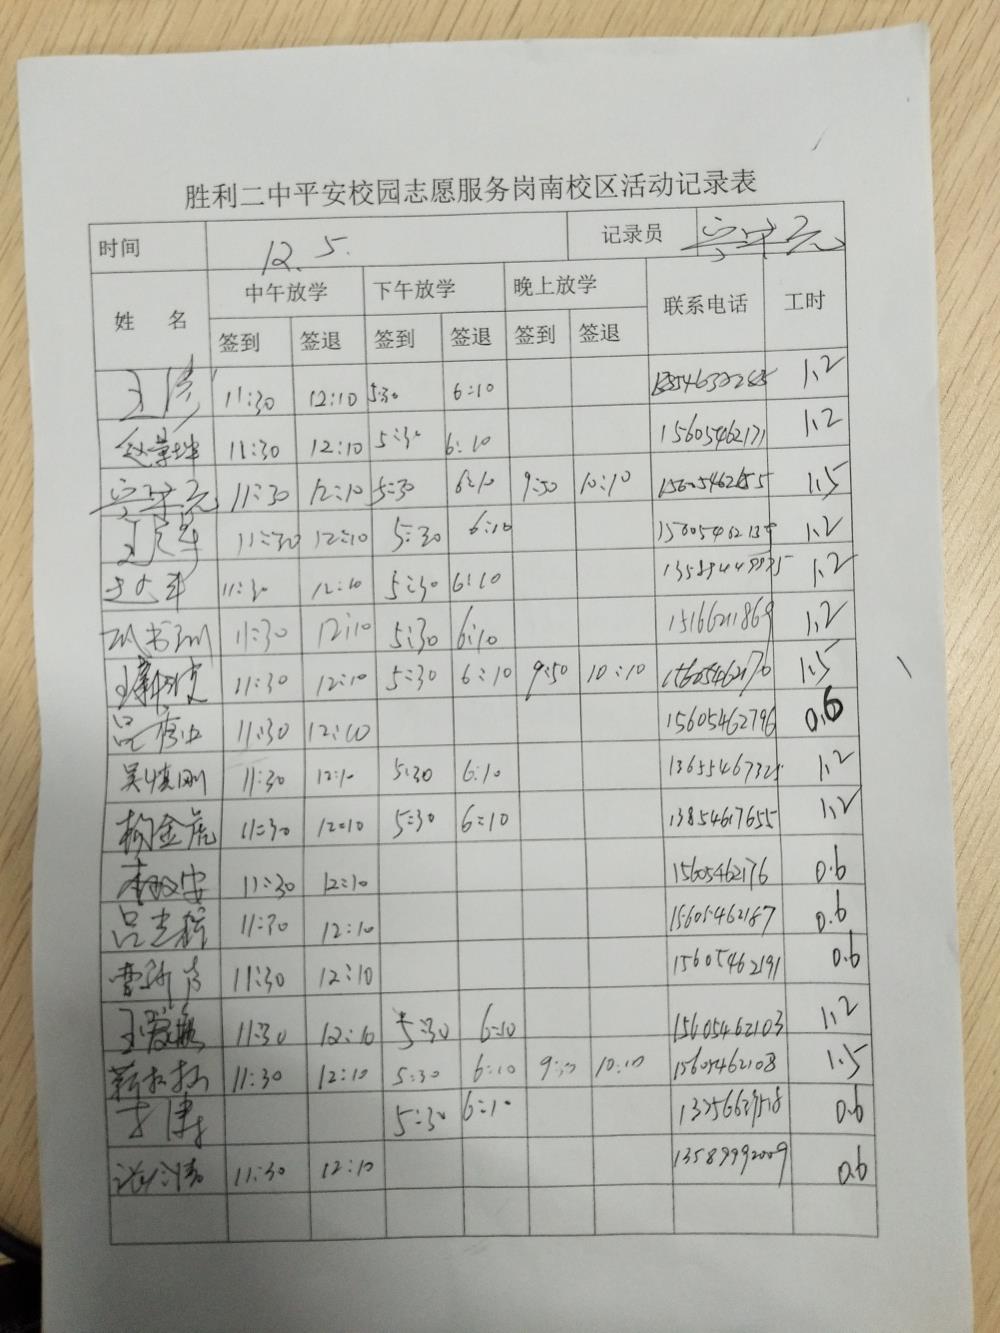 胜利二中平安校园志愿服务岗南校区活动记录表
时间 12.5. 记录员
姓 名 中午放学 下午放学 晚上放学 联系电话 工时
签到 签退 签到 签退 签到 签退
王涛 11:30 12:10 5:30 6:10 1.2
赵景坤 11:30 12:10 5:30 6:10 15605462171 1.2
11:30 12:10 5:30 6:10 9:50 10:10 15605462155 1.5
11:30 12:10 5:30 6:10 1.2
11:30 12:10 5:30 6:10 1.2
11:30 12:10 5:30 6:10 15166211869 1.2
11:30 12:10 5:30 6:10 9:50 10:10 15605462170 1.5
11:30 12:10 15605462796 0.6
吴慎刚 11:30 12:10 5:30 6:10 13655467325 1.2
杨金虎 11:30 12:10 5:30 6:10 13854617655 1.2
11:30 12:10 15605462176 0.6
吕志辉 11:30 12:10 15605462187 0.6
11:30 12:10 15605462191 0.6
11:30 12:10 5:30 6:10 15605462103 1.2
11:30 12:10 5:30 6:10 9:50 10:10 15605462108 1.5
5:30 6:10 0.6
11:30 12:10 13589992009 0.6